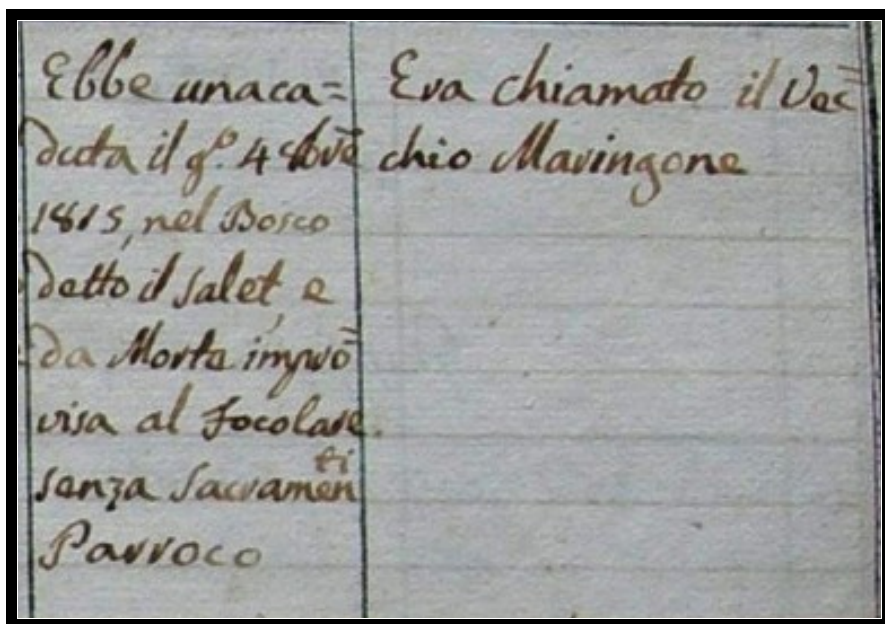 Ebbe una ca=
duta il g.º 4 8bre
1815, nel Bosco
detto il Salet, e
da Morte impro=
visa al Focolare.
senza Sacramen
ti
Parroco
Era chiamato il Vec=
chio Maringone